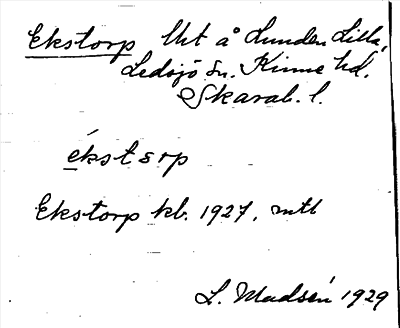 Ekstorp lht å Lunden Lilla,
Ledsjö sn. Kinne hd.
Skarab. l.
ékstɛrp
Ekstorp kb. 1927, mtl
L. Madsén 1929